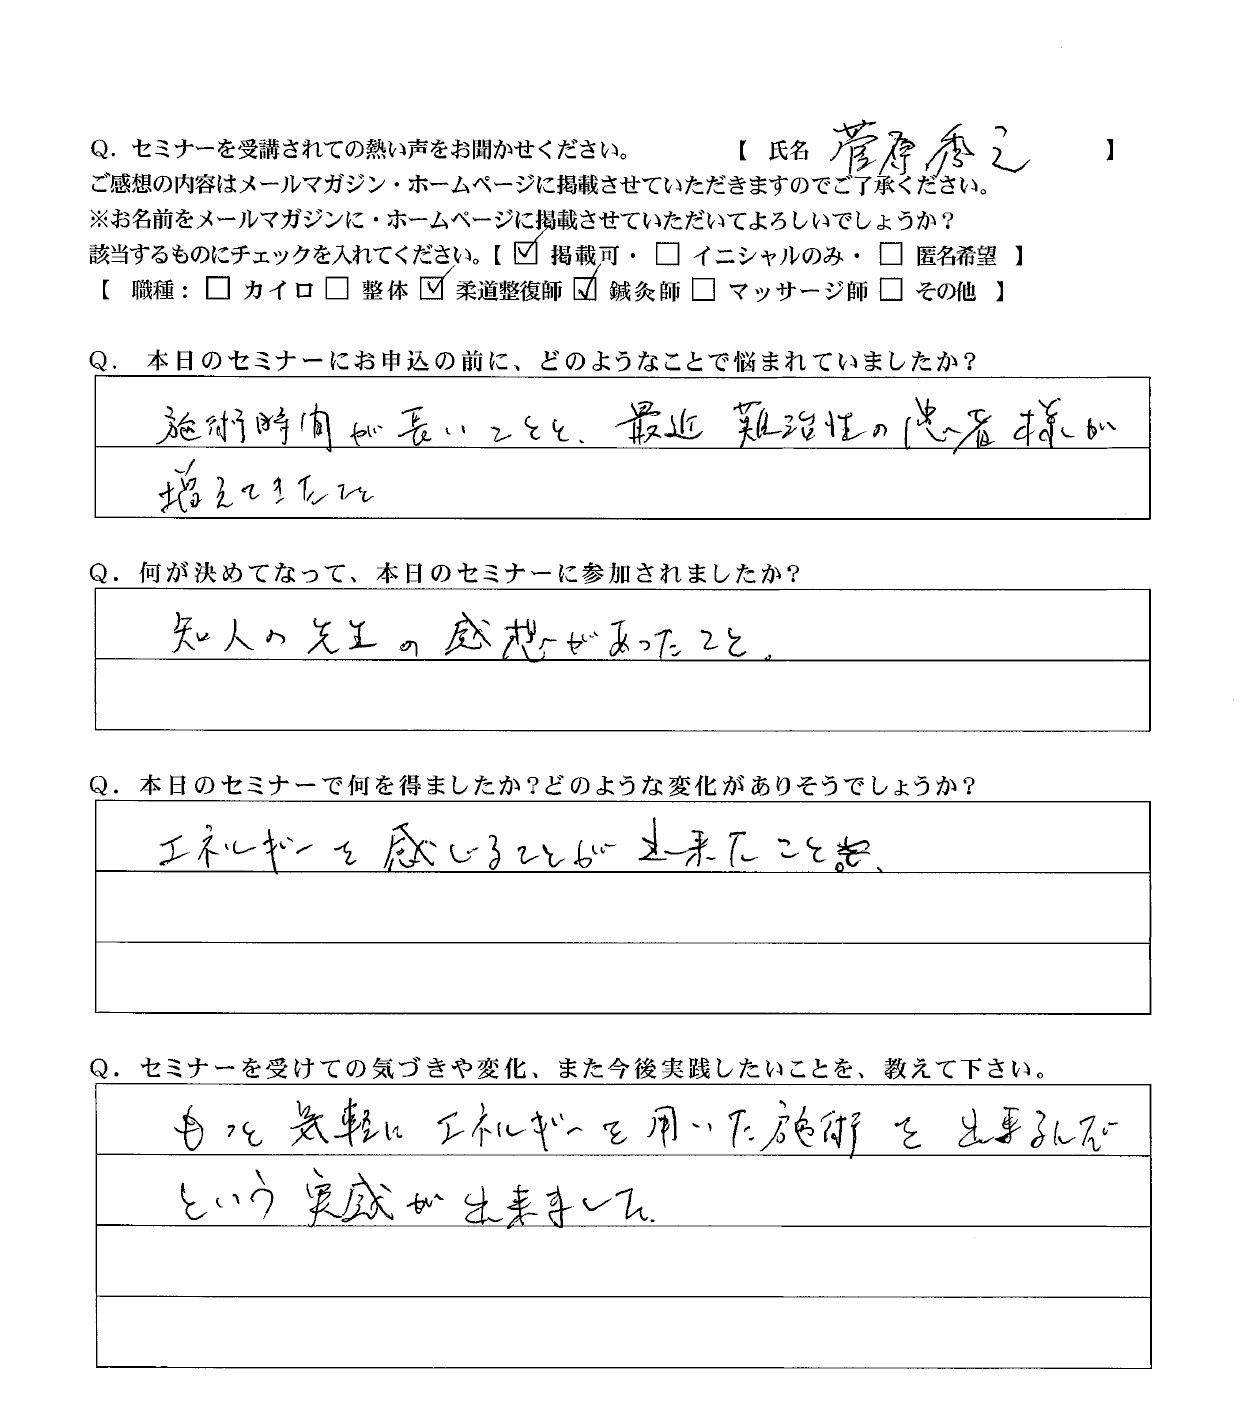 Q. セミナーを受講されての熱い声をお聞かせください。 【 氏名 菅原秀之 】
ご感想の内容はメールマガジン・ホームページに掲載させていただきますのでご了承ください。
※お名前をメールマガジンに・ホームページに掲載させていただいてよろしいでしょうか？
該当するものにチェックを入れてください。【 ☑ 掲載可・ □ イニシャルのみ・ □ 匿名希望 】
【 職種： □ カイロ □ 整体 ☑ 柔道整復師 ☑ 鍼灸師 □ マッサージ師 □ その他 】
Q. 本日のセミナーにお申込の前に、どのようなことで悩まれていましたか？
施術時間が長いことと、最近 難治性の患者様が
増えてきたこと
Q. 何が決めてなって、本日のセミナーに参加されましたか？
知人の先生の感想があったこと。
Q. 本日のセミナーで何を得ましたか？どのような変化がありそうでしょうか？
エネルギーを感じることが出来たこと。
Q. セミナーを受けての気づきや変化、また今後実践したいことを、教えて下さい。
もっと気軽にエネルギーを用いた施術を出来るんだ
という実感が出来ました。